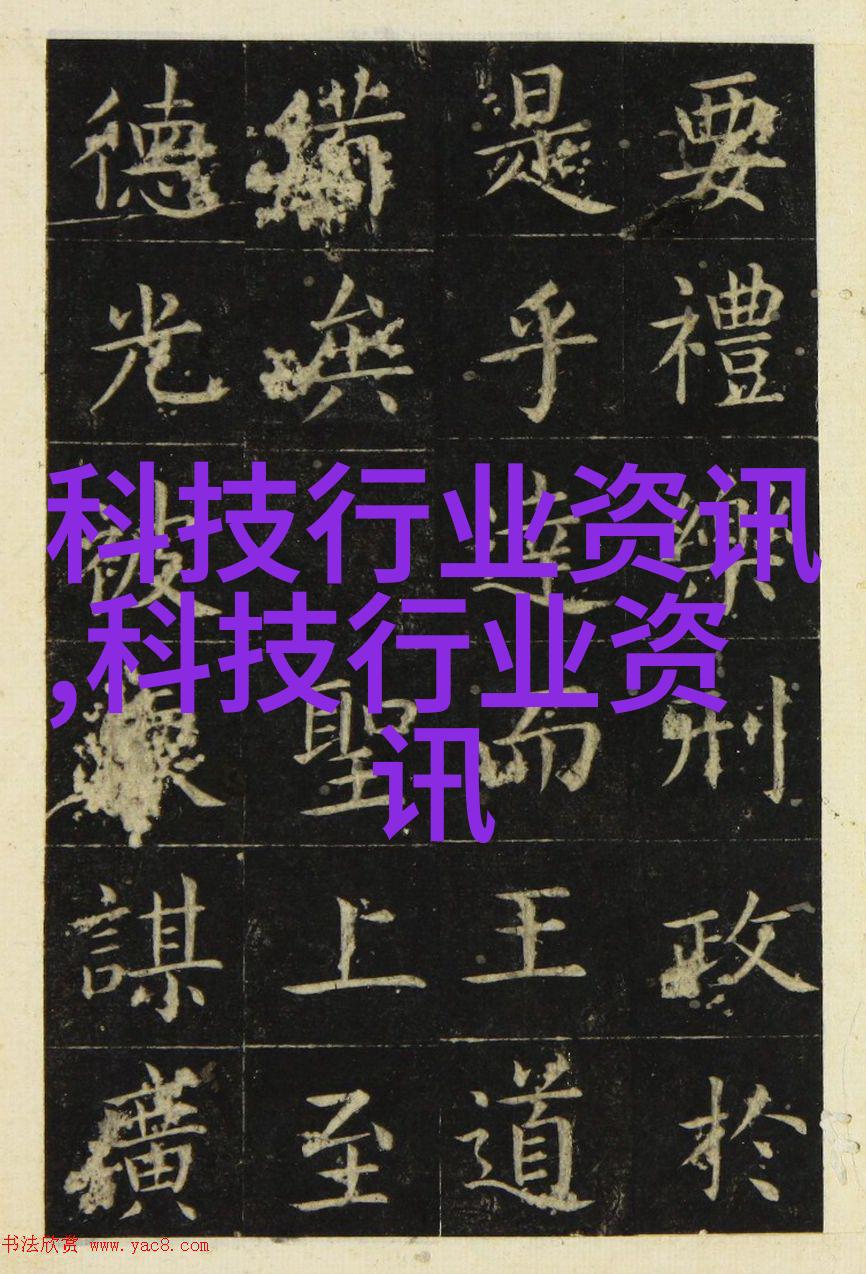 科技行业资讯
,科技行业资
讯
要禮樂刑政於
是乎達而王道
備無聖上至
德光被謀廣
书法欣赏 www.yac8.com